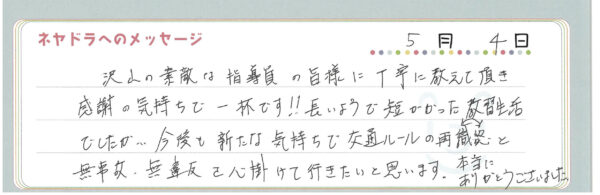 ネヤドラへのメッセージ
5月 4日
沢山の素敵な指導員の皆様に丁寧に教えて頂き
感謝の気持ちで一杯です!!長いようで短かかった教習生活
でしたが…今後も新たな気持ちで交通ルールの再認識と
無事故・無違反を心掛けて行きたいと思います。本当に
ありがとうございました